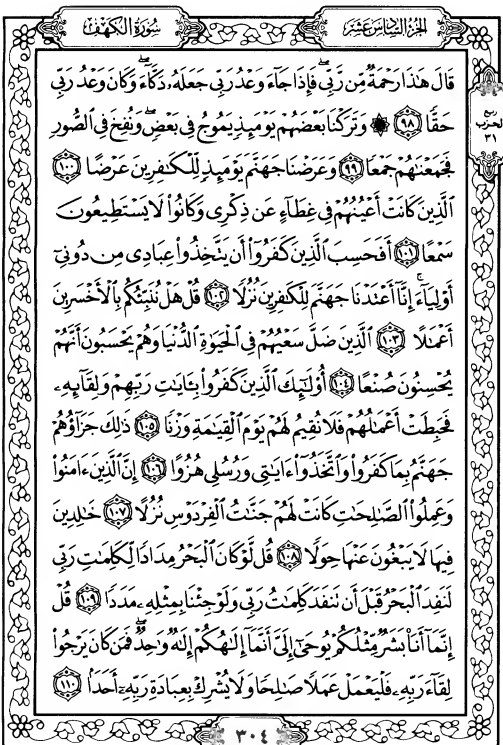 سُورَةُ الكَهْفِ
الجُزْءُ السَّادِسَ عَشَرَ
قَالَ هَٰذَا رَحْمَةٌ مِّن رَّبِّي ۖ فَإِذَا جَاءَ وَعْدُ رَبِّي جَعَلَهُۥ دَكَّاءَ ۖ وَكَانَ وَعْدُ رَبِّي
حَقًّا ٩٨ ۞ وَتَرَكْنَا بَعْضَهُمْ يَوْمَئِذٍ يَمُوجُ فِي بَعْضٍ ۖ وَنُفِخَ فِي ٱلصُّورِ
ربع
لحزب
٣١
فَجَمَعْنَٰهُمْ جَمْعًا ٩٩ وَعَرَضْنَا جَهَنَّمَ يَوْمَئِذٍ لِّلْكَٰفِرِينَ عَرْضًا ١٠٠
ٱلَّذِينَ كَانَتْ أَعْيُنُهُمْ فِي غِطَآءٍ عَن ذِكْرِي وَكَانُوا۟ لَا يَسْتَطِيعُونَ
سَمْعًا ١٠١ أَفَحَسِبَ ٱلَّذِينَ كَفَرُوٓا۟ أَن يَتَّخِذُوا۟ عِبَادِي مِن دُونِيٓ
أَوْلِيَآءَ ۚ إِنَّآ أَعْتَدْنَا جَهَنَّمَ لِلْكَٰفِرِينَ نُزُلًا ١٠٢ قُلْ هَلْ نُنَبِّئُكُم بِٱلْأَخْسَرِينَ
أَعْمَٰلًا ١٠٣ ٱلَّذِينَ ضَلَّ سَعْيُهُمْ فِي ٱلْحَيَوٰةِ ٱلدُّنْيَا وَهُمْ يَحْسَبُونَ أَنَّهُمْ
يُحْسِنُونَ صُنْعًا ١٠٤ أُو۟لَٰٓئِكَ ٱلَّذِينَ كَفَرُوا۟ بِـَٔايَٰتِ رَبِّهِمْ وَلِقَآئِهِۦ
فَحَبِطَتْ أَعْمَٰلُهُمْ فَلَا نُقِيمُ لَهُمْ يَوْمَ ٱلْقِيَٰمَةِ وَزْنًا ١٠٥ ذَٰلِكَ جَزَآؤُهُمْ
جَهَنَّمُ بِمَا كَفَرُوا۟ وَٱتَّخَذُوٓا۟ ءَايَٰتِي وَرُسُلِي هُزُوًا ١٠٦ إِنَّ ٱلَّذِينَ ءَامَنُوا۟
وَعَمِلُوا۟ ٱلصَّٰلِحَٰتِ كَانَتْ لَهُمْ جَنَّٰتُ ٱلْفِرْدَوْسِ نُزُلًا ١٠٧ خَٰلِدِينَ
فِيهَا لَا يَبْغُونَ عَنْهَا حِوَلًا ١٠٨ قُل لَّوْ كَانَ ٱلْبَحْرُ مِدَادًا لِّكَلِمَٰتِ رَبِّي
لَنَفِدَ ٱلْبَحْرُ قَبْلَ أَن تَنفَدَ كَلِمَٰتُ رَبِّي وَلَوْ جِئْنَا بِمِثْلِهِۦ مَدَدًا ١٠٩ قُلْ
إِنَّمَآ أَنَا۠ بَشَرٌ مِّثْلُكُمْ يُوحَىٰٓ إِلَيَّ أَنَّمَآ إِلَٰهُكُمْ إِلَٰهٌ وَٰحِدٌ ۖ فَمَن كَانَ يَرْجُوا۟
لِقَآءَ رَبِّهِۦ فَلْيَعْمَلْ عَمَلًا صَٰلِحًا وَلَا يُشْرِكْ بِعِبَادَةِ رَبِّهِۦٓ أَحَدًۢا ١١٠
٣٠٤